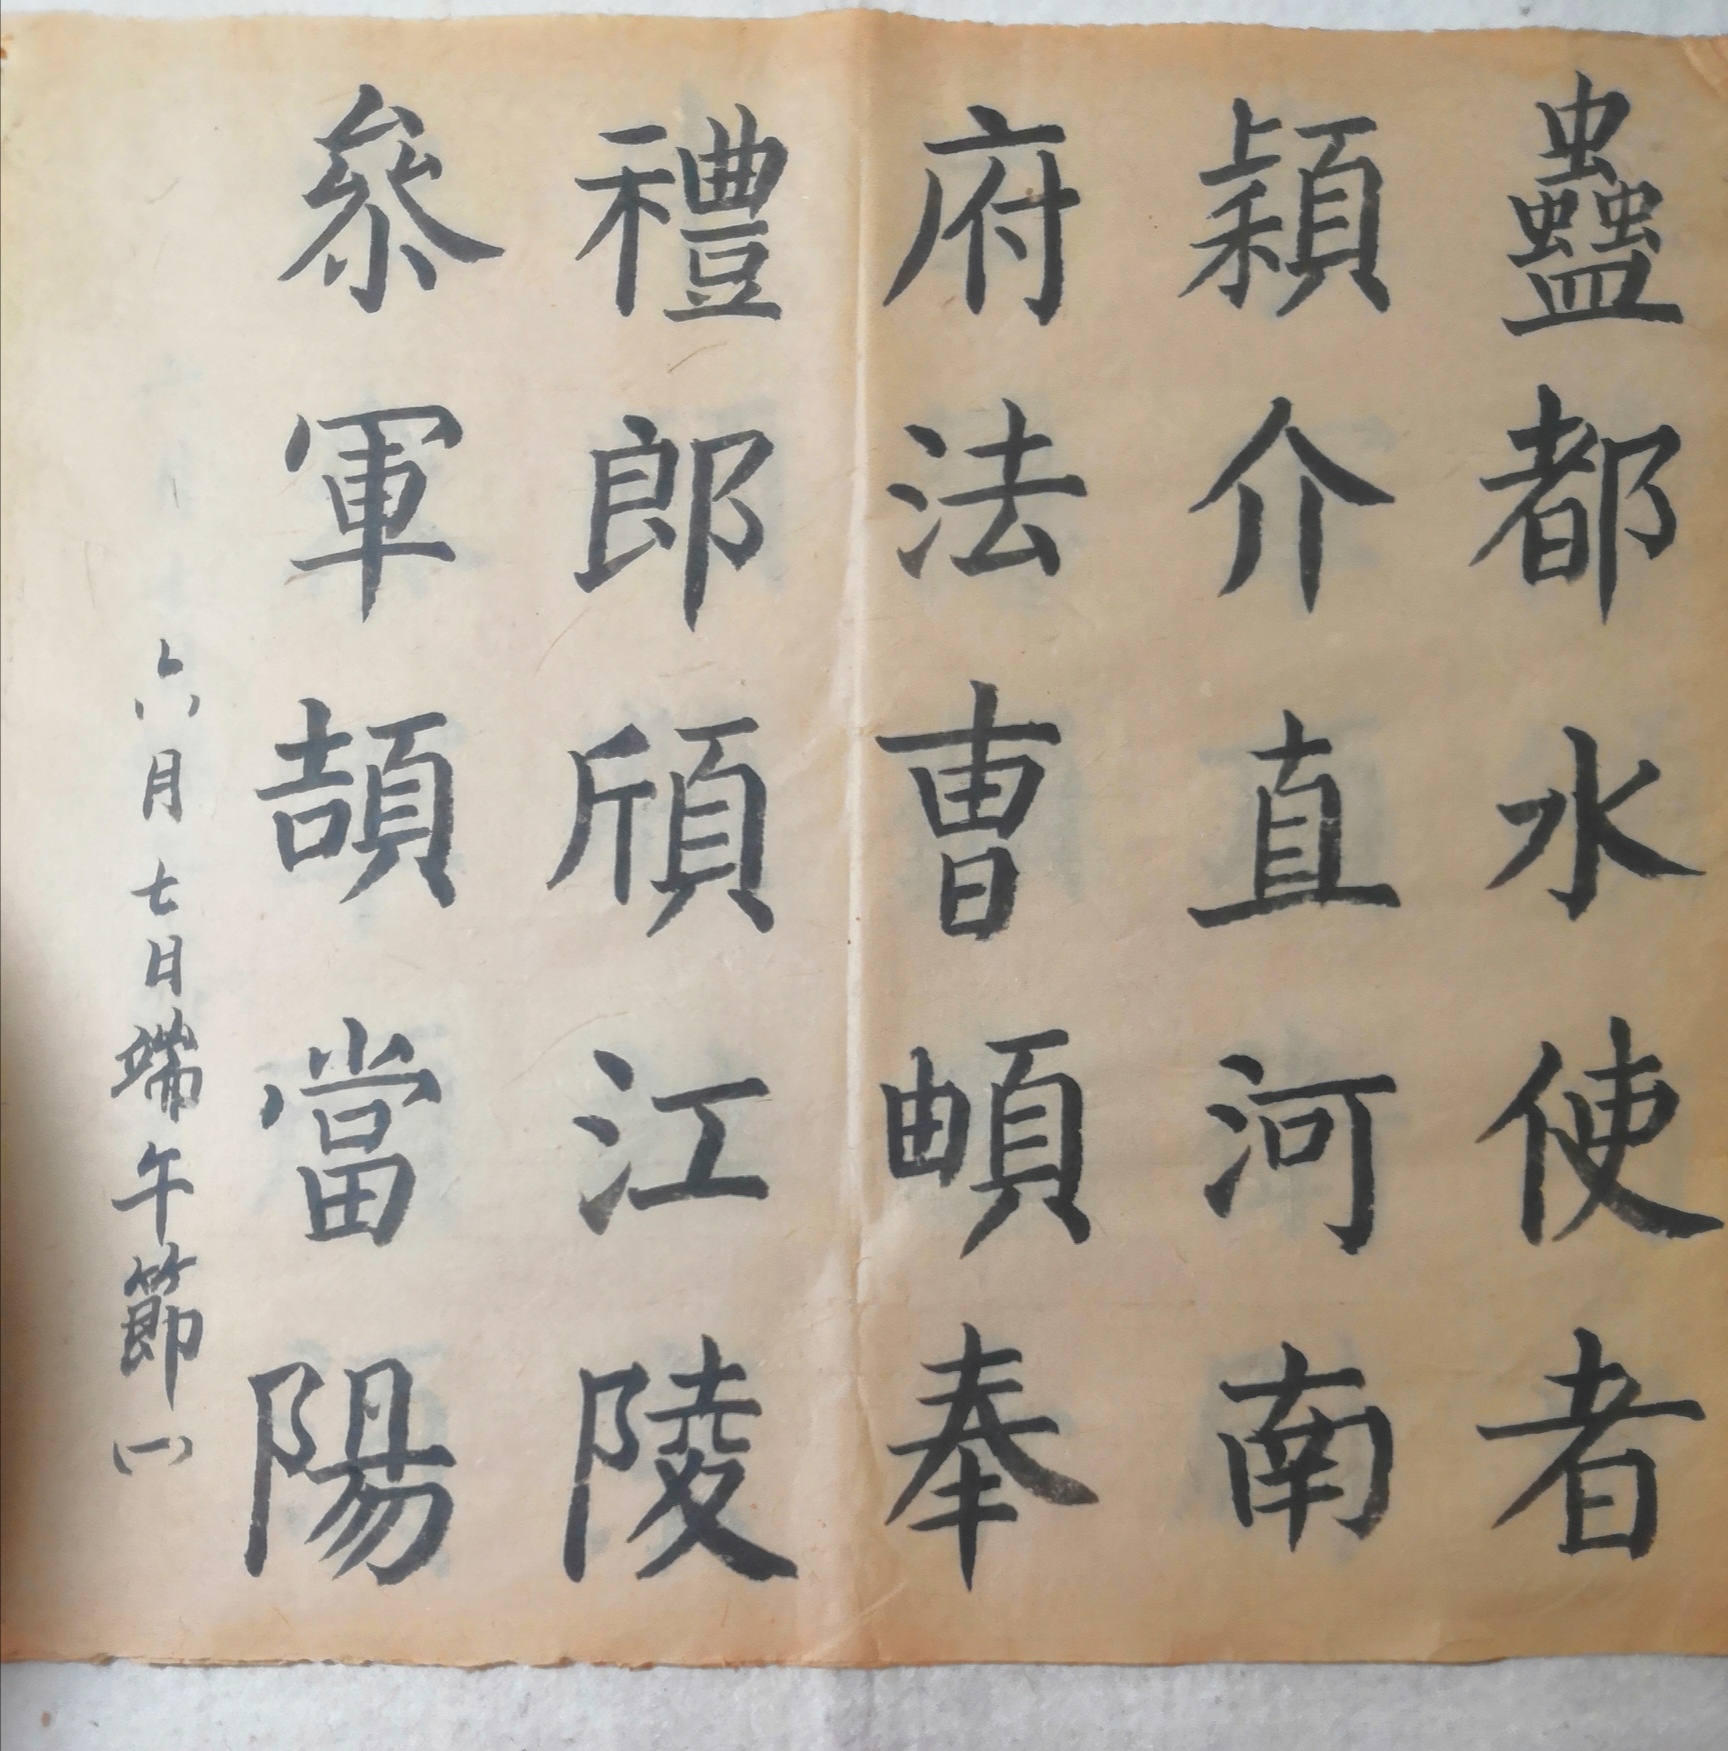 蠱都水使者
穎介直河南
府法曹頔奉
禮郎頎江陵
參軍頡當陽
六月七日端午節(一)